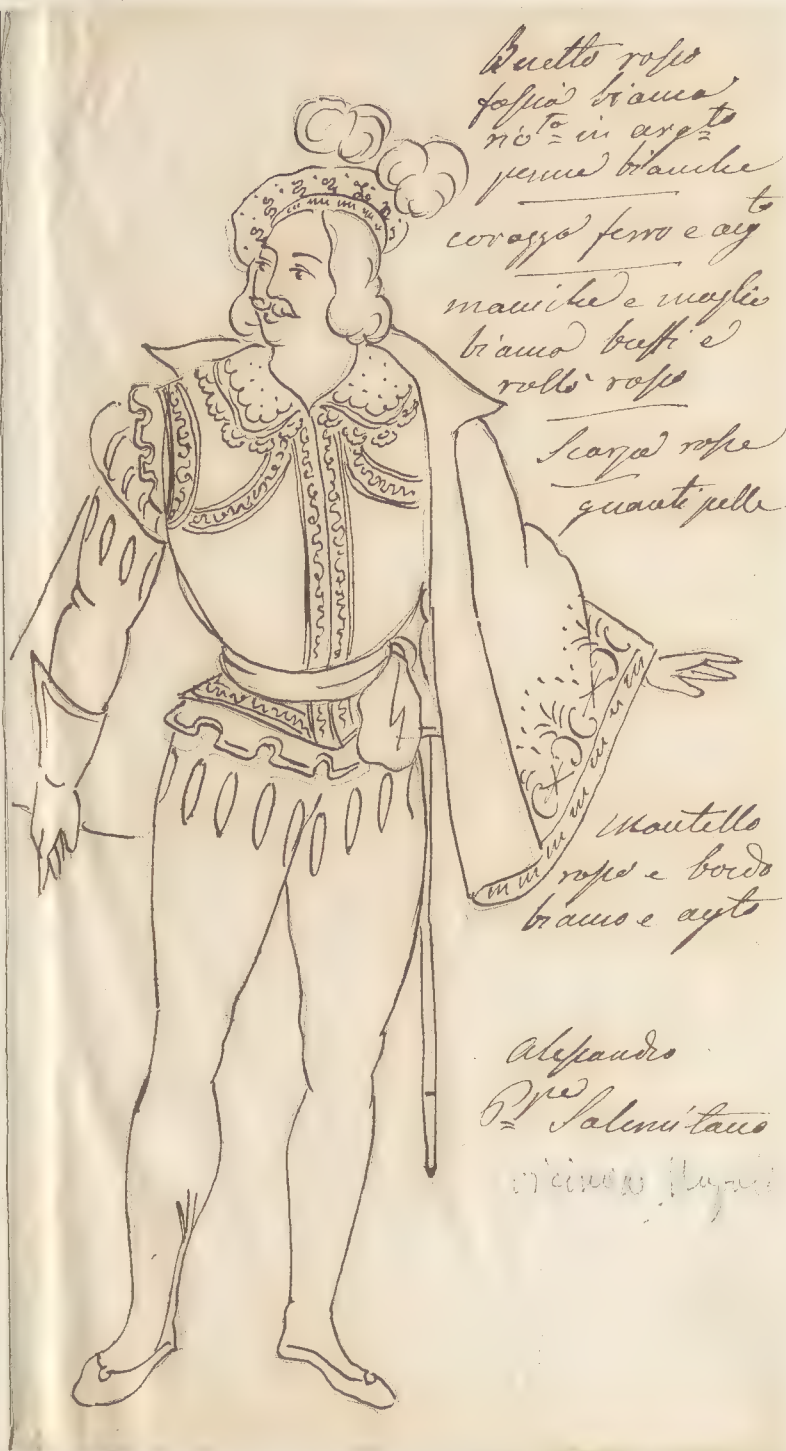 Beretto rosso
fascia bianca
ric.to in arg.to
penne bianche
corazza ferro e arg.to
maniche e maglie
bianco buffi e
rollò rosso
Scarpa rosse
guanti pelle
Mantello
rosso e bordo
bianco e arg.to
Alessandro
P.pe Salernitano